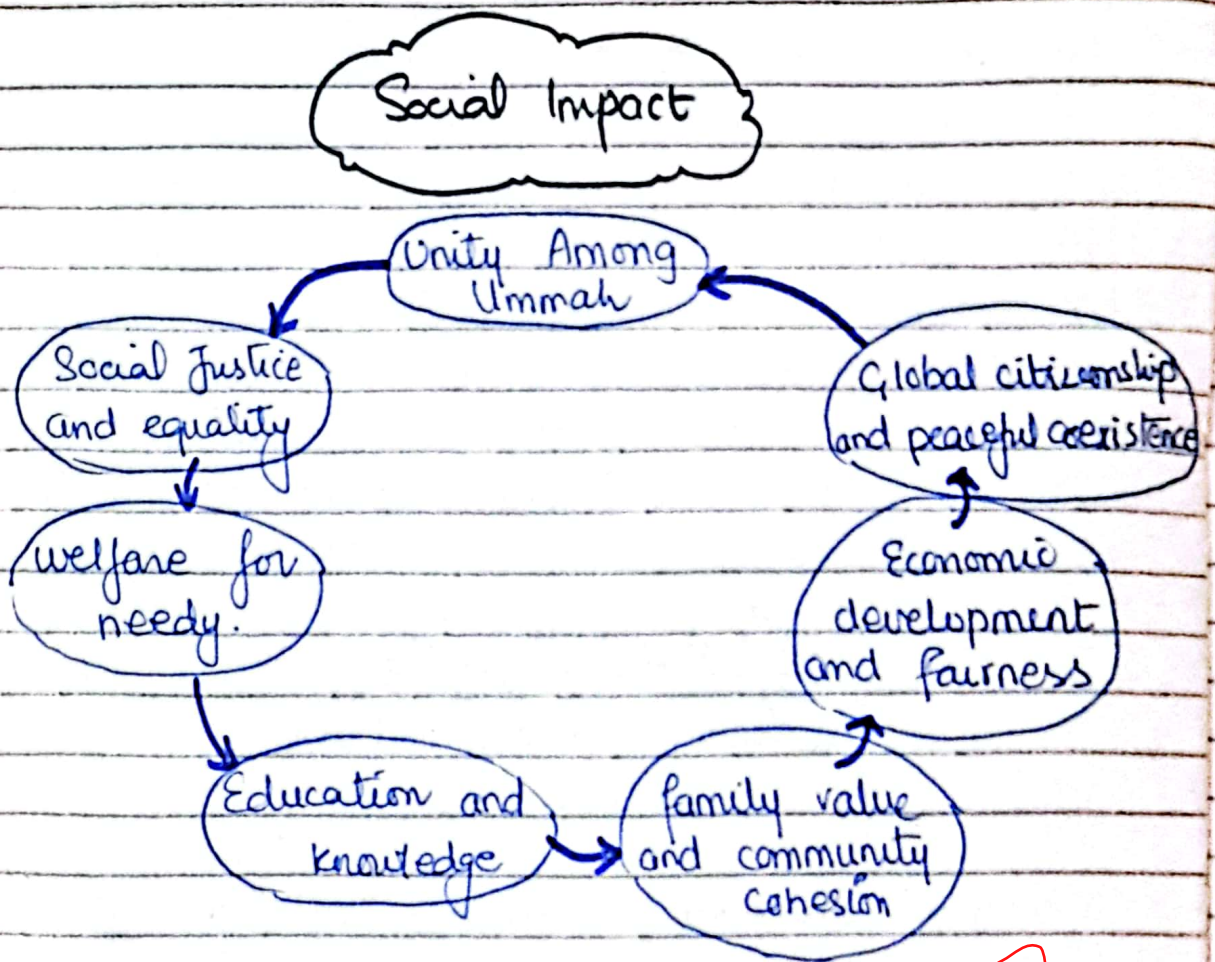 Social Impact
Unity Among
Ummah
Social Justice
and equality
Welfare for
needy.
Education and
knowledge
family value
and community
cohesion
Economic
development
and fairness
Global citizenship
and peaceful coexistence